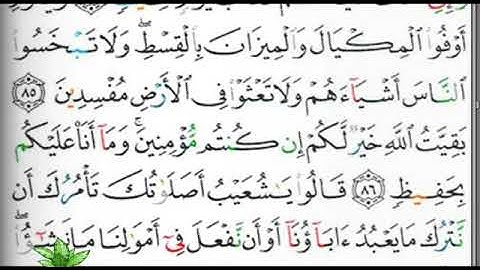 أَوۡفُواْ ٱلۡمِكۡيَالَ وَٱلۡمِيزَانَ بِٱلۡقِسۡطِۖ وَلَا تَبۡخَسُواْ
ٱلنَّاسَ أَشۡيَآءَهُمۡ وَلَا تَعۡثَوۡاْ فِي ٱلۡأَرۡضِ مُفۡسِدِينَ ٨٥
بَقِيَّتُ ٱللَّهِ خَيۡرٞ لَّكُمۡ إِن كُنتُم مُّؤۡمِنِينَۚ وَمَآ أَنَا۠ عَلَيۡكُم
بِحَفِيظٖ ٨٦ قَالُواْ يَٰشُعَيۡبُ أَصَلَوٰتُكَ تَأۡمُرُكَ أَن
نَّتۡرُكَ مَا يَعۡبُدُ ءَابَآؤُنَآ أَوۡ أَن نَّفۡعَلَ فِيٓ أَمۡوَٰلِنَا مَا نَشَٰٓؤُاْۖ